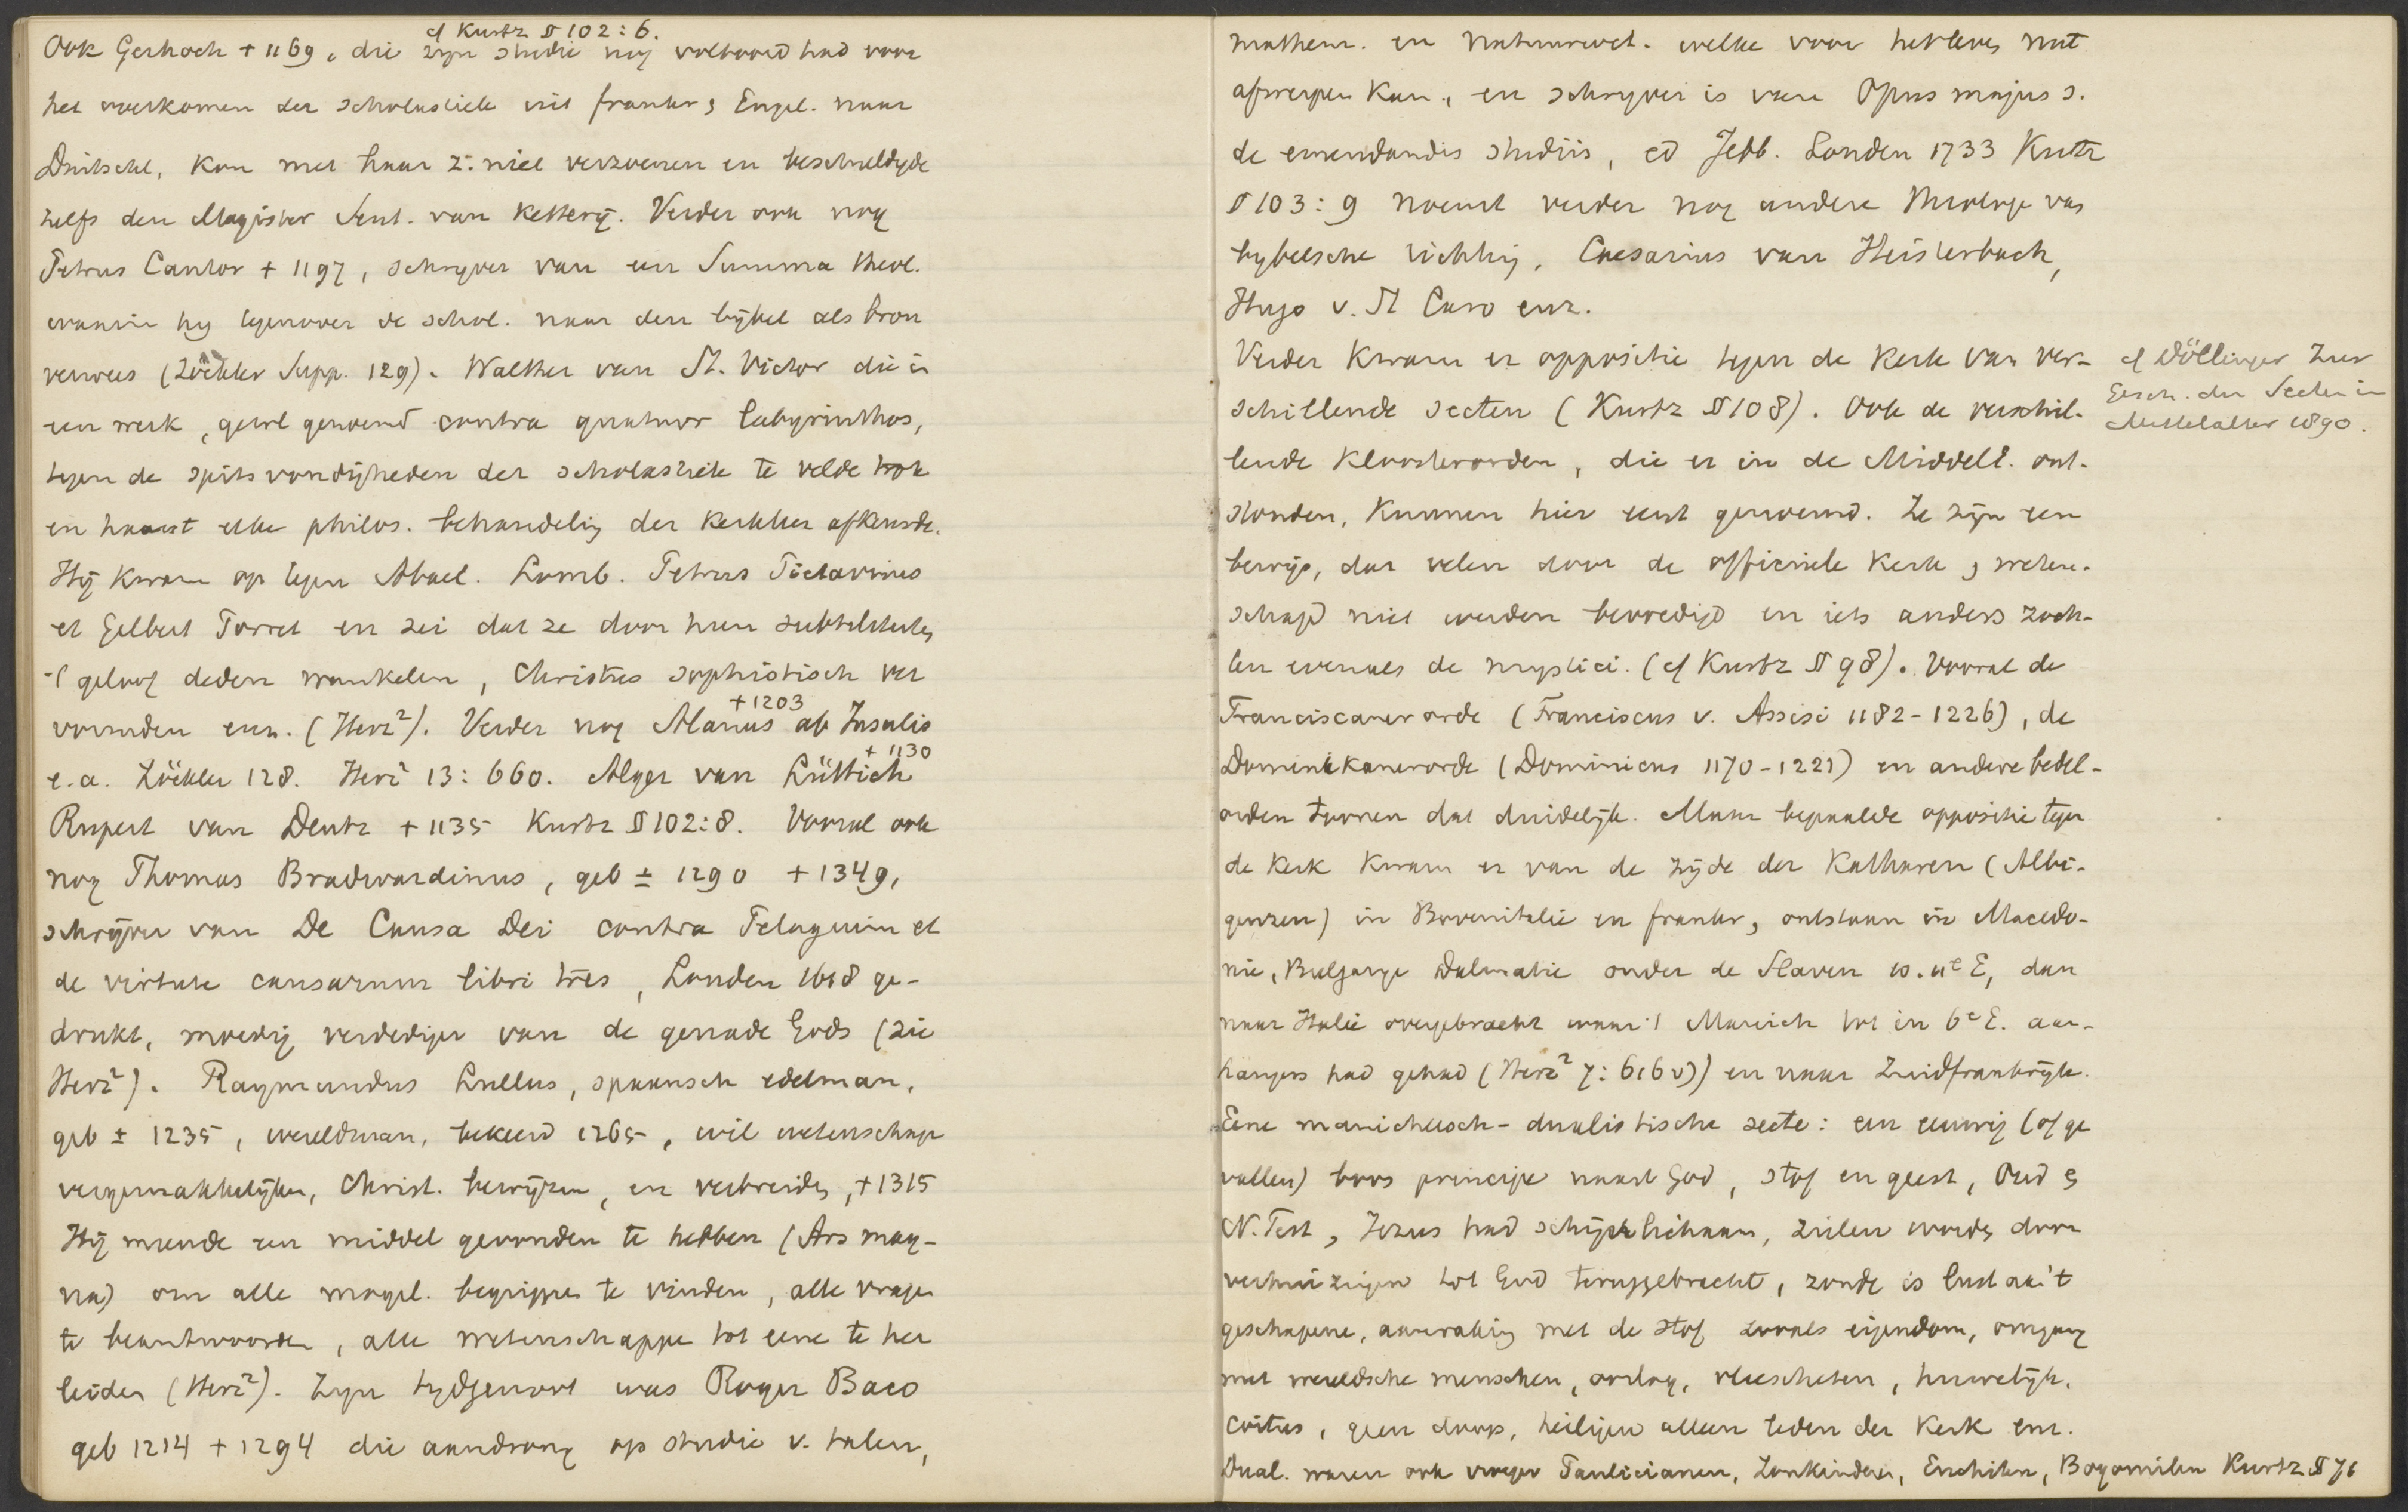 cf Kurtz § 102:6.
Ook Gerhoch + 1169, die zijn studie nog voltooid had voor
het overkomen der scholastiek uit frankr, Engel. naar
Duitschl, kon met haar z. niet verzoenen en beschuldigde
zelfs den Magister Sent. van ketterij. Verder ook nog
Petrus Cantor + 1197, schryver van een Summa theol.
waarin hy tegenover de schol. naar den bijbel als bron
verwees (Zöckler Supp. 129). Walther van St. Victor die in
een werk, gewl genoemd contra quatuor labyrinthos,
tegen de spitsvondigheden der scholastiek te velde trok
en haast elke philos. behandeling der kerkleer afkeurde.
Hij kwam op tegen Abael. Lomb. Petrus Pictavinus
et Gilbert Porret en zei dat ze door hun subtiliteiten
't geloof deden wankelen, Christus sophistisch ver
+1203
vormden enz. (Herz²). Verder nog Alanus ab Insulis
+ 1130
e.a. Zöckler 128. Herz² 13: 660. Alger van Lüttich
Rupert van Deutz + 1135 Kurtz § 102:8. Vooral ook
nog Thomas Bradwardinus, geb ± 1290 + 1349,
schrijver van De Causa Dei contra Pelagium et
de virtute causarum libri tres, Londen 1618 ge-
drukt, moedig verdediger van de genade Gods (zie
Herz²). Raymundus Lullus, spaansch edelman,
geb ± 1235, wereldman, bekeerd 1265, wil wetenschap
vergemakkelijken, Christ. bewijzen, en verbreiden, + 1315
Hij meende een middel gevonden te hebben (Ars mag-
na) om alle mogel. begrippen te vinden, alle vragen
te beantwoorden, alle wetenschappe tot eene te her
leiden (Herz²). Zijn tydgenoot was Roger Baco
geb 1214 + 1294 die aandrong op studie v. talen,
mathem. en natuurwet. welke voor het leven nut
afwerpen kan, en schryver is van Opus majus s.
de emendandis studiis, ed Jebb. Londen 1733 Kurtz
§ 103: 9 noemt verder nog andere theologe van
bybelsche richting, Caesarius van Heisterbach,
Hugo v. St Caro enz.
Verder kwam er oppositie tegen de kerk van ver-
schillende secten (Kurtz § 108). Ook de verschil-
lende kloosterorden, die er in de Middele. ont-
stonden, kunnen hier eerst genoemd. Ze zijn een
bewijs, dat velen door de officieele kerk, weten-
schap niet werden bevredigd en iets anders zoch-
ten evenals de mystici. (cf Kurtz § 98). Vooral de
Franciscaner orde (Franciscus v. Assisi 1182-1226), de
Dominikanerorde (Dominicus 1170-1221) en andere bedel-
orden toonen dat duidelijk. Maar bepaalde oppositie tegen
de kerk kwam er van de zijde der Katharen (Albi-
genzen) in Bovenitalie en frankr, ontstaan in Macedo-
nie, Bulgarije Dalmatie onder de Slaven 10. 11e E, dan
naar Italie overgebracht waar 't Manich tot in 6e E. aan-
hangers had gehad (Herz² 7: 616 v)) en naar Zuidfrankrijk.
Eene manicheesch-dualistische secte: een eeuwig (of ge
vallen) boos principe naast God, stof en geest, Oud &
N. Test, Jezus had schijnlichaam, zielen worden door
verhuizingen tot God teruggebracht, zonde is lust aan 't
geschapene, aanraking met de stof zooals eigendom, omgang
met wereldsche menschen, oorlog, vleescheten, huwelijk,
coitus, geen doop, heiligen alleen leden der kerk enz.
Dual. waren ook vroeger Paulicianen, Zonkinderen, Euchiten, Bogomilen Kurtz § 76
cf Döllinger Zur
Gesch. der Secten in
Mittelalter 1890.